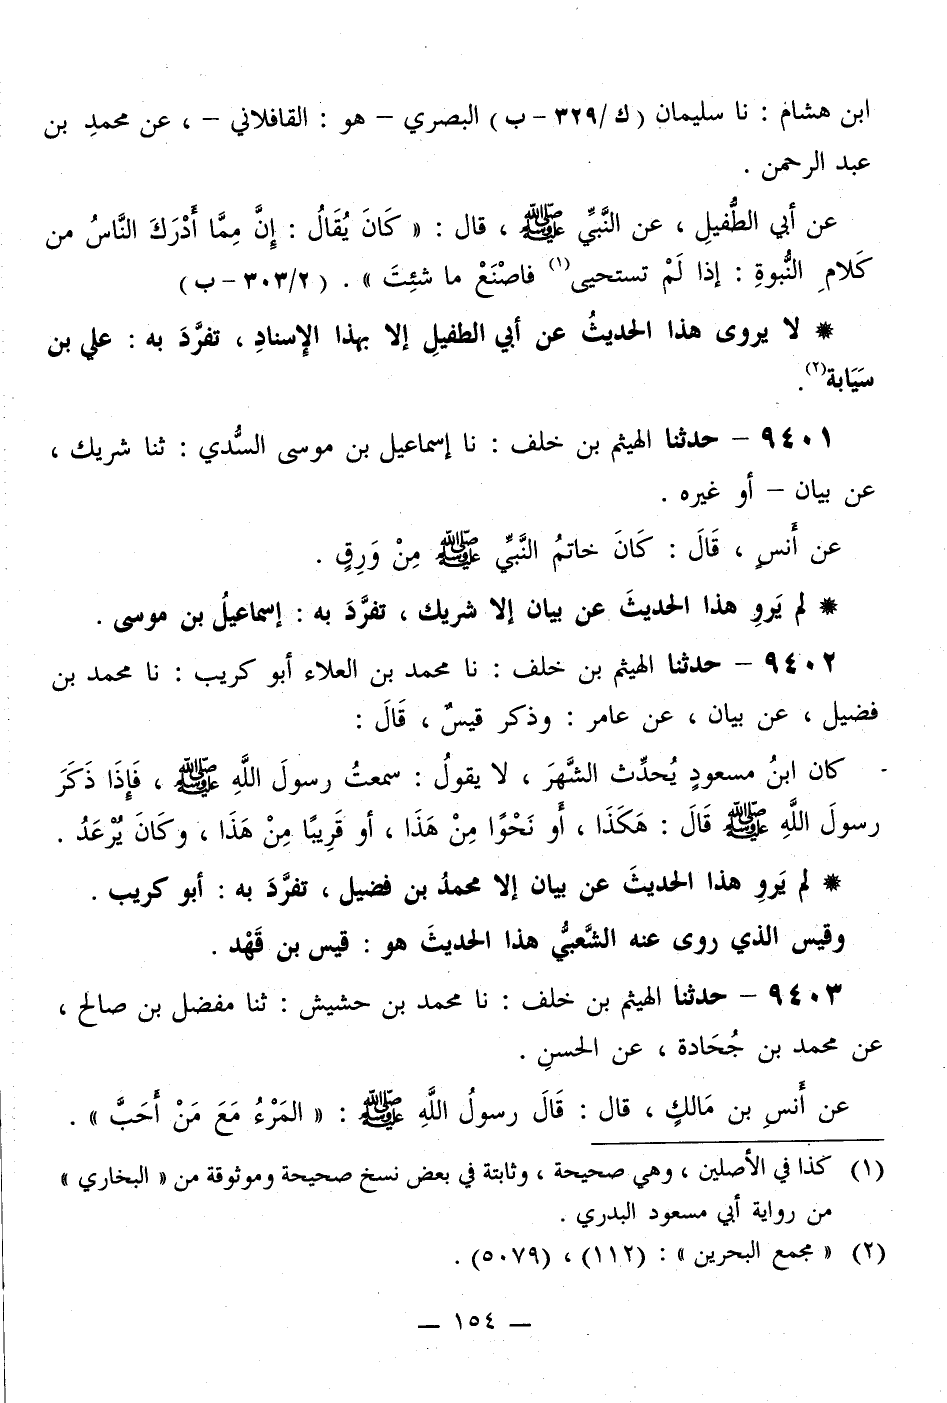 ابن هشام : نا سليمان (ك/٣٢٩ – ب) البصري – هو : القافلاني – ، عن محمدِ بن
عبد الرحمن .
عن أبي الطُّفيلِ ، عن النَّبيِّ ﷺ ، قال : « كَانَ يُقَالُ : إِنَّ مِمَّا أَدْرَكَ النَّاسُ من
كَلامِ النُّبوةِ : إذا لَمْ تستحيى(١) فاصْنَعْ ما شئِتَ » . ( ٣٠٣/٢ – ب)
* لا يروى هذا الحديثُ عن أبي الطفيلِ إلا بهذا الإسنادِ ، تفرَّدَ به : علي بن
سَيَابة(٢).
٩٤٠١ – حدثنا الهيثم بن خلف : نا إسماعيل بن موسى السُّدي : ثنا شريك ،
عن بيان – أو غيره .
عن أَنسٍ ، قَالَ : كَانَ خاتمُ النَّبيِّ ﷺ مِنْ وَرِقٍ .
* لم يَروِ هذا الحديثَ عن بيان إلا شريك ، تفرَّدَ به : إسماعيلُ بن موسى .
٩٤٠٢ – حدثنا الهيثم بن خلف : نا محمد بن العلاء أبو كريب : نا محمد بن
فضيل ، عن بيان ، عن عامر : وذكر قيسٌ ، قَالَ :
كان ابنُ مسعودٍ يُحدِّث الشَّهرَ ، لا يقولُ : سمعتُ رسولَ اللَّهِ ﷺ ، فَإِذَا ذَكَرَ
رسولَ اللَّهِ ﷺ قَالَ : هَكَذَا ، أَو نَحْوًا مِنْ هَذَا ، أو قَرِيبًا مِنْ هَذَا ، وكَانَ يُرْعَدُ .
* لم يَروِ هذا الحديثَ عن بيان إلا محمدُ بن فضيل ، تفرَّدَ به : أبو كريب .
وقيس الذي روى عنه الشَّعبيُّ هذا الحديثَ هو : قيس بن قَهْد .
٩٤٠٣ – حدثنا الهيثم بن خلف : نا محمد بن حشيش : ثنا مفضل بن صالح ،
عن محمد بن جُحَادة ، عن الحسنِ .
عن أَنسِ بن مَالكٍ ، قال : قَالَ رسولُ اللَّهِ ﷺ : « المَرْءُ مَعَ مَنْ أَحَبَّ » .
(١) كذا في الأصلين ، وهي صحيحة ، وثابتة في بعض نسخ صحيحة وموثوقة من « البخاري »
من رواية أبي مسعود البدري .
(٢) « مجمع البحرين » : (١١٢) ، (٥٠٧٩) .
— ١٥٤ —